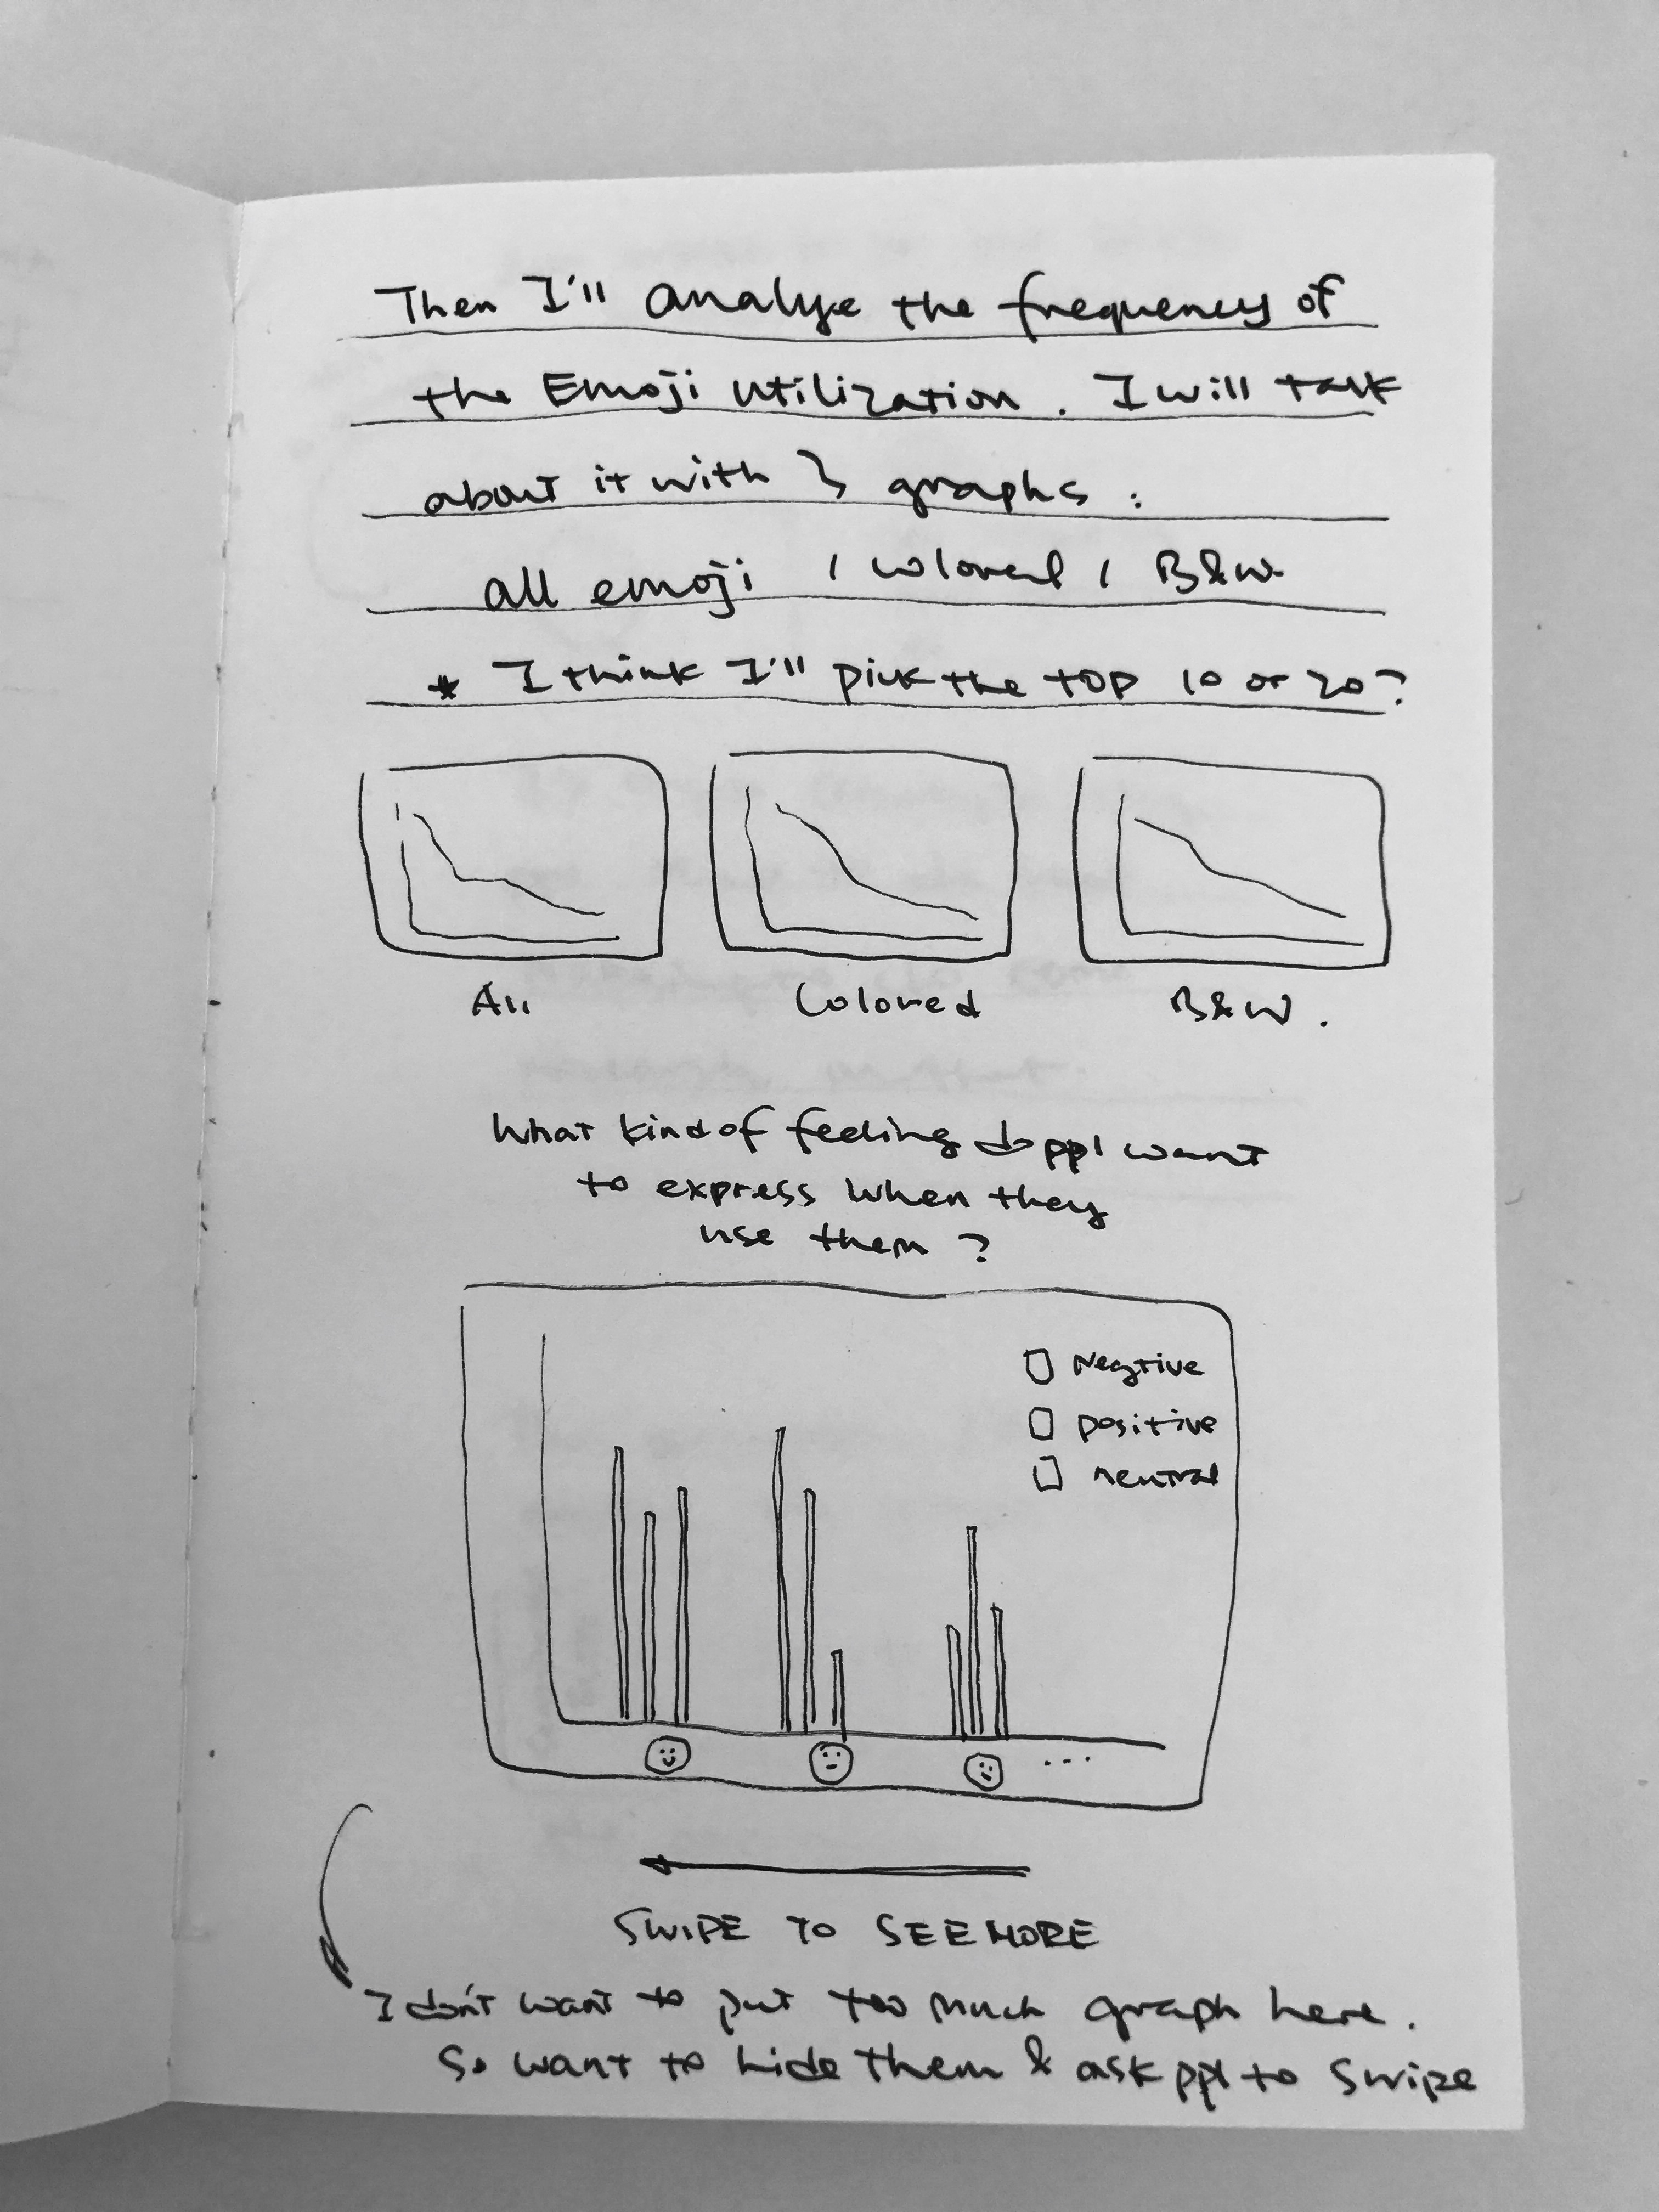 Then I'll analyze the frequency of
the Emoji utilization. I will talk
about it with 3 graphs :
all emoji / colored / B&W
* I think I'll pick the top 10 or 20?
All
Colored
B&W.
What kind of feeling do ppl want
to express when they
use them ?
Negtive
positive
neutral
...
SWIPE TO SEE MORE
I don't want to put too much graph here.
So want to hide them & ask ppl to swipe